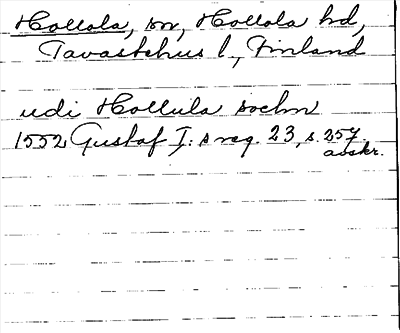 Hollola, sn, Hollola hd,
Tavastehus l, Finland
udi Hollula sochn
1552 Gustaf I:s reg. 23, s. 257.
avskr.